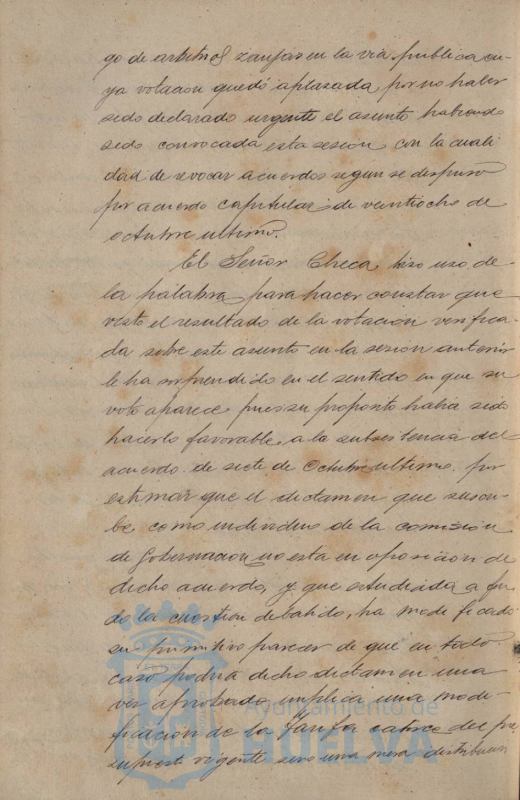 go de arbitrios zanjas en la via publica cu-
ya votacion quedó aplazada por no haber
sido declarado urgente el asunto habiendo
sido convocada esta sesion con la cuali
dad de revocar acuerdos segun se dispuso
por acuerdo capitular de veintiocho de
octubre ultimo.
El Señor Checa hizo uso de
la palabra para hacer constar que
visto el resultado de la votación verifica-
da sobre este asunto en la sesion anterior
le ha sorprendido en el sentido en que su
voto aparece pues su proposito habia sido
hacerlo favorable a la subsistencia del
acuerdo de siete de Octubre ultimo por
estimar que el dictamen que suscri-
be como individuo de la comision
de Gobernacion no esta en oposicion de
dicho acuerdo, y que estudiada a fon
do la cuestion debatida, ha modificado
su primitivo parecer de que en todo
caso podria dicho dictamen una
vez aprobado implica una modi-
ficacion de la tarifa catorce del pre
supuesto vigente sino una mera distribucion
Ayuntamiento de
HUELVA